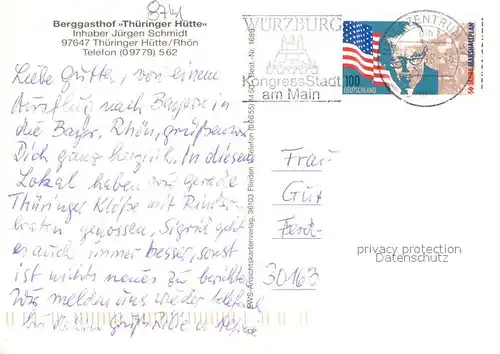 8741
Berggasthof »Thüringer Hütte«
Inhaber Jürgen Schmidt
97647 Thüringer Hütte/Rhön
Telefon (09779) 5 62
Liebe Gutter, von einem
Ausflug nach Bayern in
die Bayr. Rhön, grüßen wir
Dich ganz herzlich. In diesem
Lokal haben wir gerade
Thüringer Klöße mit Rinder-
braten genossen, Sigrid geht
es auch immer besser, sonst
ist nichts neues zu berichten
Wir melden uns wieder telefonisch
bis dahin Grüße
RWS-Ansichtskartenverlag, 36103 Flieden, Telefon (06655) Best.-Nr. 1689
WÜRZBURG
KongressStadt
am Main
ZENTRUM
100
DEUTSCHLAND
50 JAHRE MARSHALLPLAN
Frau
Gut
Ferd-
30163
privacy protection
Datenschutz